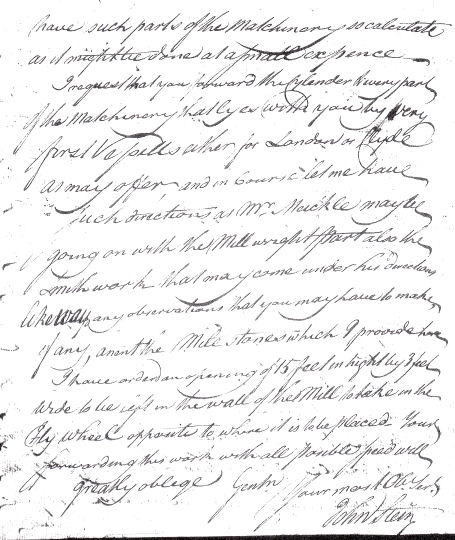 have such parts of the Matchinery so calculate
as it might be done at a small expence
I request that you forward the Cylender & every part
of the Matchinery that lyes with you by very
first Vessells either for London or Clyde
as may offer and in Course let me have
such directions as Mr. Meickle may be
going on with the Mill wright part also the
Smith work that may come under his directions
likeway any observations that you may have to make
if any, anent the Mill stones which I provide here
I have orderd an opening of 15 feet in hight by 3 feet
wide to be left in the wall of the Mill to take in the
Fly wheel opposite to where it is to be placed Your
forwarding this work with all possible speed will
greatly oblege Gentn. Your most Obt. Sert.
John Stein